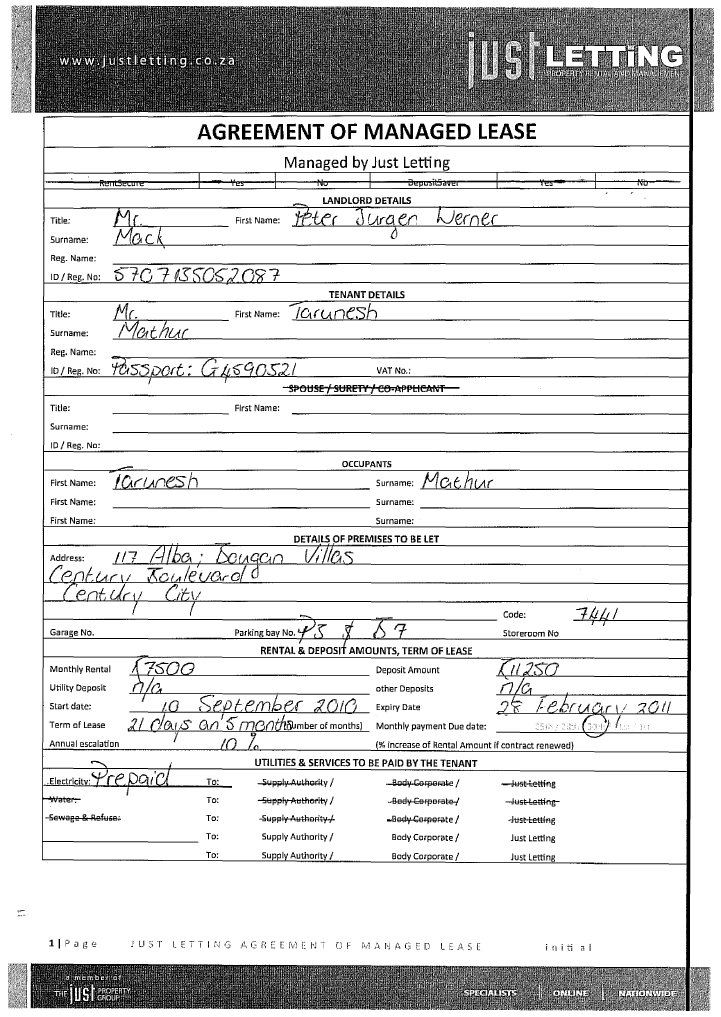 www.justletting.co.za
just LETTiNG
PROPERTY RENTAL AND MANAGEMENT
AGREEMENT OF MANAGED LEASE
Managed by Just Letting
RentSecure Yes No DepositSaver Yes No
LANDLORD DETAILS
Title: Mr. First Name: Peter Jurgen Werner
Surname: Mack
Reg. Name:
ID / Reg. No: 5707135052087
TENANT DETAILS
Title: Mr. First Name: Tarunesh
Surname: Mathur
Reg. Name:
ID / Reg. No: Passport: G4590521 VAT No.:
SPOUSE / SURETY / CO-APPLICANT
Title: First Name:
Surname:
ID / Reg. No:
OCCUPANTS
First Name: Tarunesh Surname: Mathur
First Name: Surname:
First Name: Surname:
DETAILS OF PREMISES TO BE LET
Address: 117 Alba; Dougan Villas
Century Boulevard
Century City
Code: 7441
Garage No. Parking bay No. P3 & 57 Storeroom No
RENTAL & DEPOSIT AMOUNTS, TERM OF LEASE
Monthly Rental R7500 Deposit Amount R11250
Utility Deposit n/a other Deposits n/a
Start date: 10 September 2010 Expiry Date 28 February 2011
Term of Lease 21 days an 5 month (Number of months) Monthly payment Due date:
Annual escalation 10 % (% increase of Rental Amount if contract renewed)
UTILITIES & SERVICES TO BE PAID BY THE TENANT
Electricity: Prepaid To: Supply Authority / Body Corporate / Just Letting
Water: To: Supply Authority / Body Corporate / Just Letting
Sewage & Refuse: To: Supply Authority / Body Corporate / Just Letting
To: Supply Authority / Body Corporate / Just Letting
To: Supply Authority / Body Corporate / Just Letting
1 | Page JUST LETTING AGREEMENT OF MANAGED LEASE initial
a member of
THE just PROPERTY GROUP
SPECIALISTS | ONLINE | NATIONWIDE